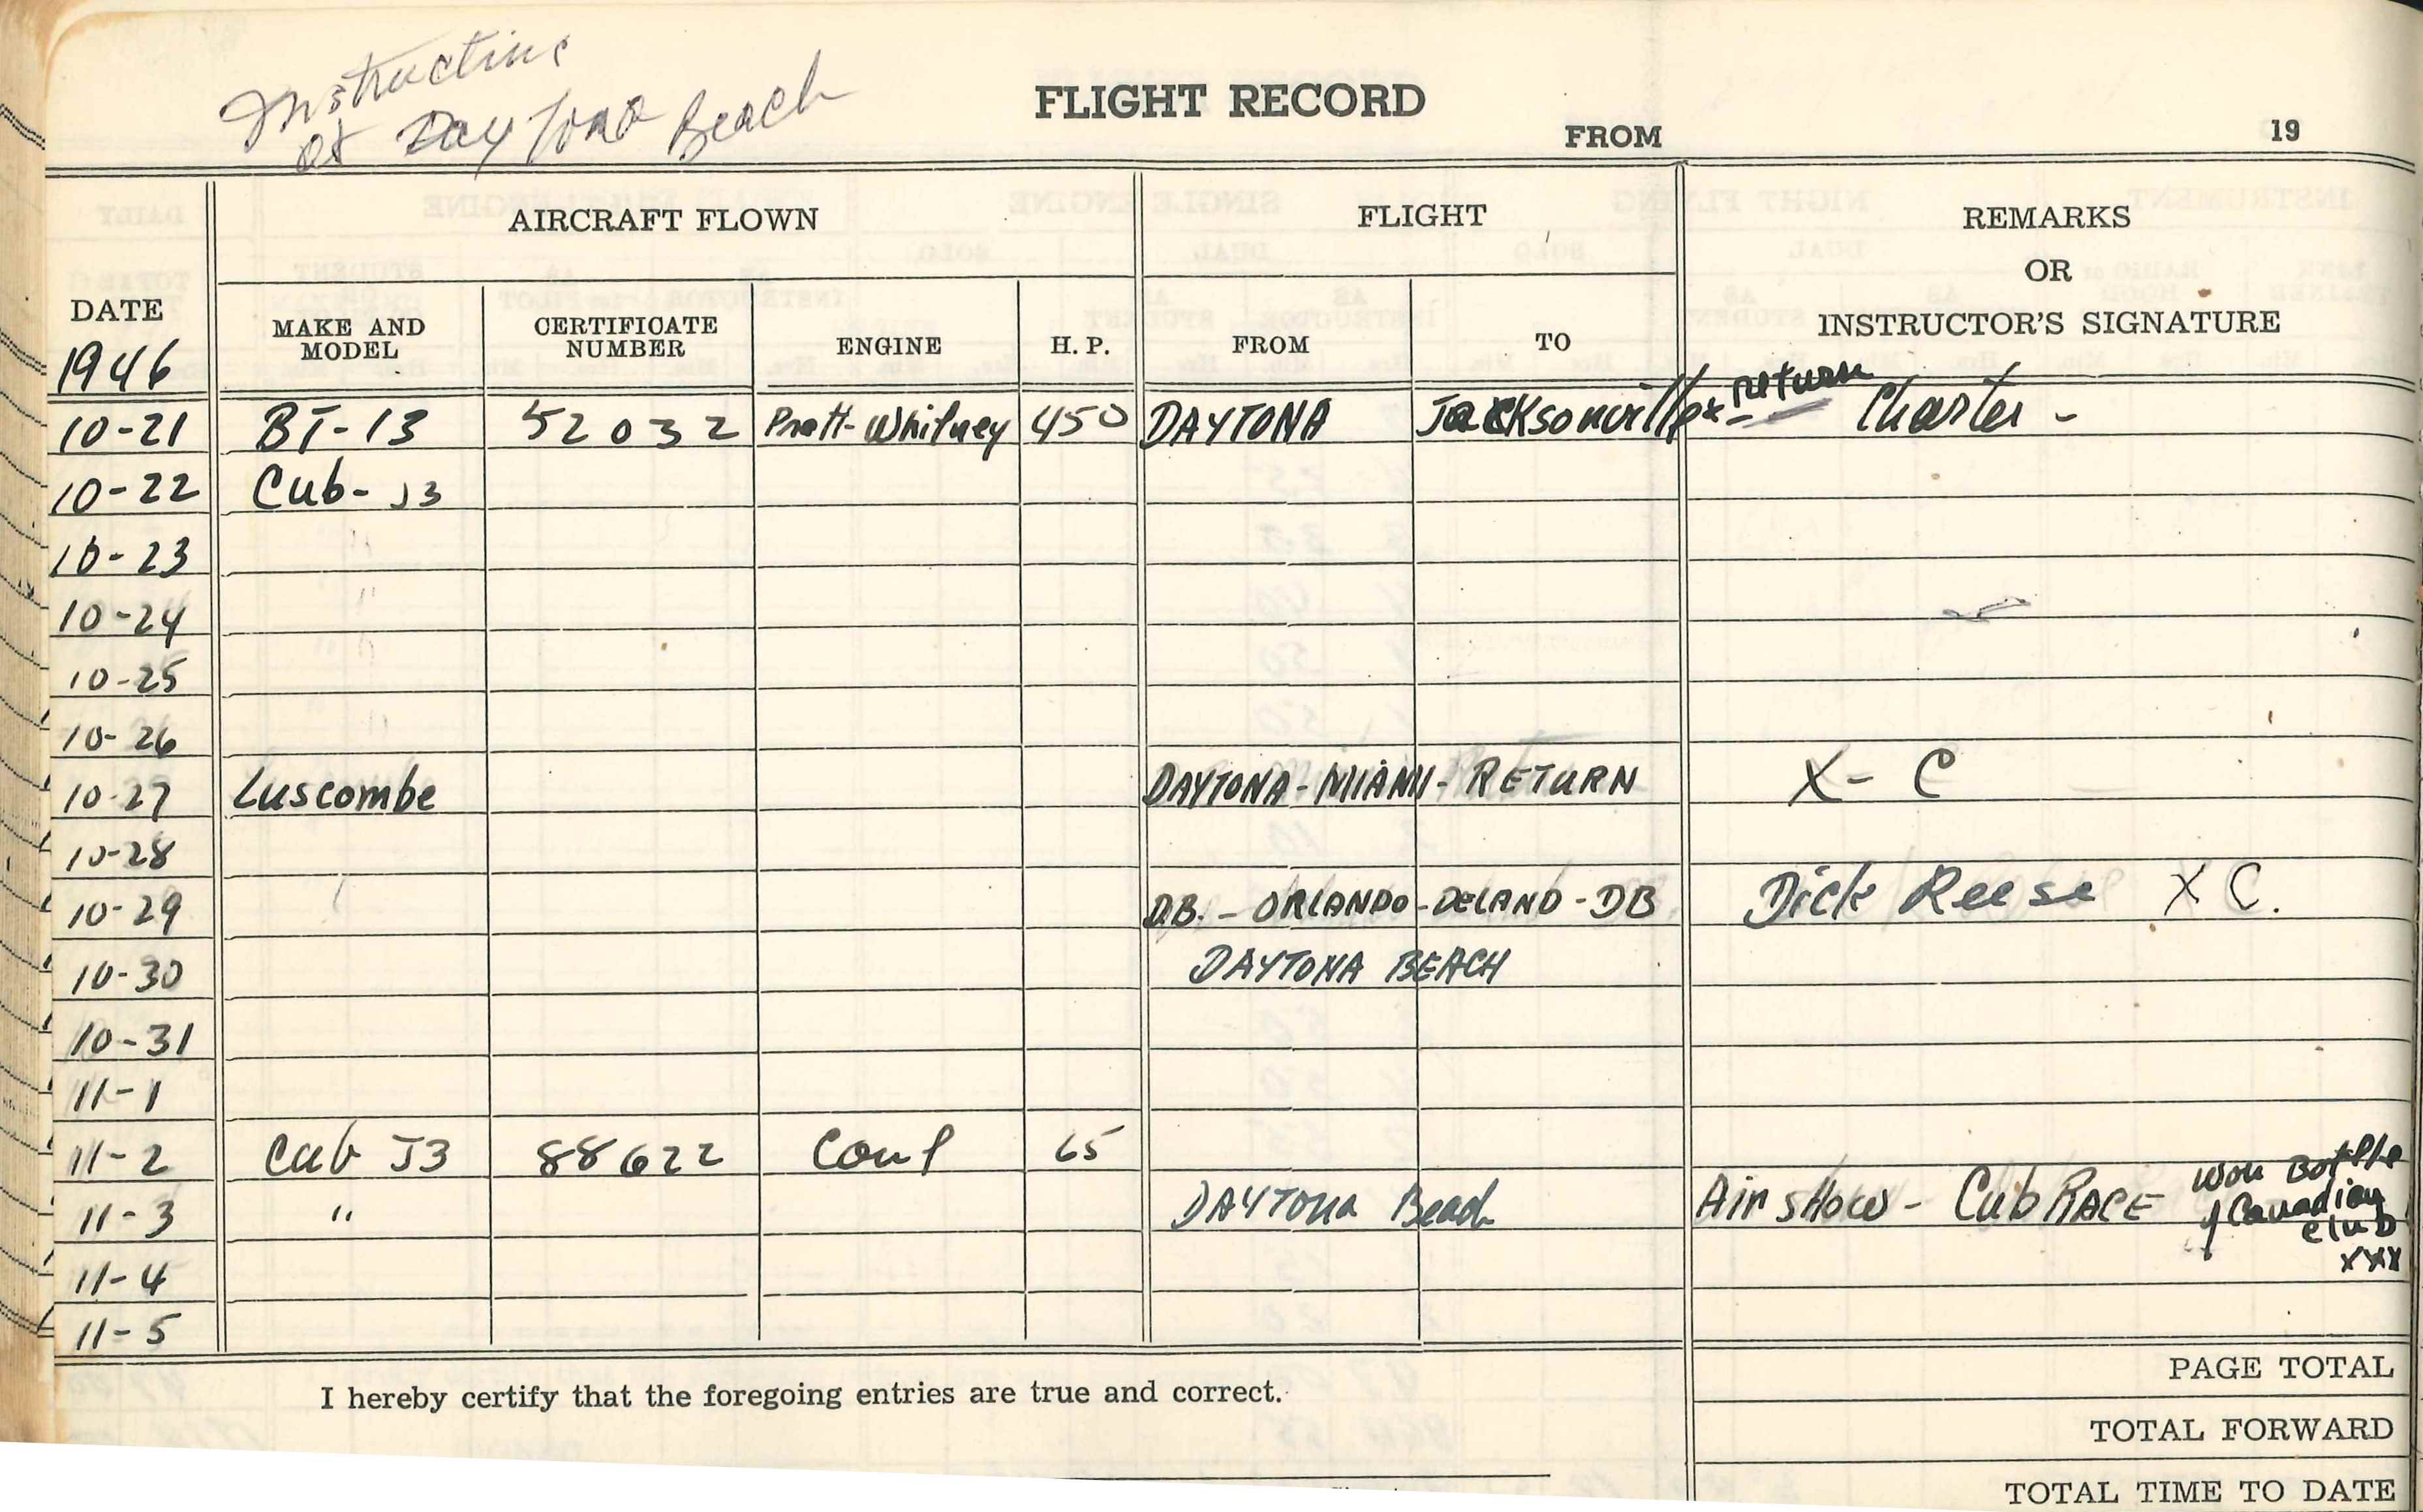 Instructing
at Daytona Beach
FLIGHT RECORD
FROM 19
AIRCRAFT FLOWN FLIGHT REMARKS
OR
INSTRUCTOR'S SIGNATURE
DATE MAKE AND MODEL CERTIFICATE NUMBER ENGINE H. P. FROM TO
1946
10-21 BT-13 52032 Pratt-Whitney 450 DAYTONA Jacksonville & return Charter -
10-22 Cub- J3
10-23
10-24
10-25
10-26
10-27 Luscombe DAYTONA - MIAMI - RETURN X - C
10-28
10-29 D.B. - ORLANDO - DELAND - DB Dick Reese X C.
10-30 DAYTONA BEACH
10-31
11-1
11-2 Cub J3 88622 Conl 65
11-3 " DAYTONA Beach Air sHow - Cub RACE won Bottle
of Canadian
club
xxx
11-4
11-5
I hereby certify that the foregoing entries are true and correct.
PAGE TOTAL
TOTAL FORWARD
TOTAL TIME TO DATE